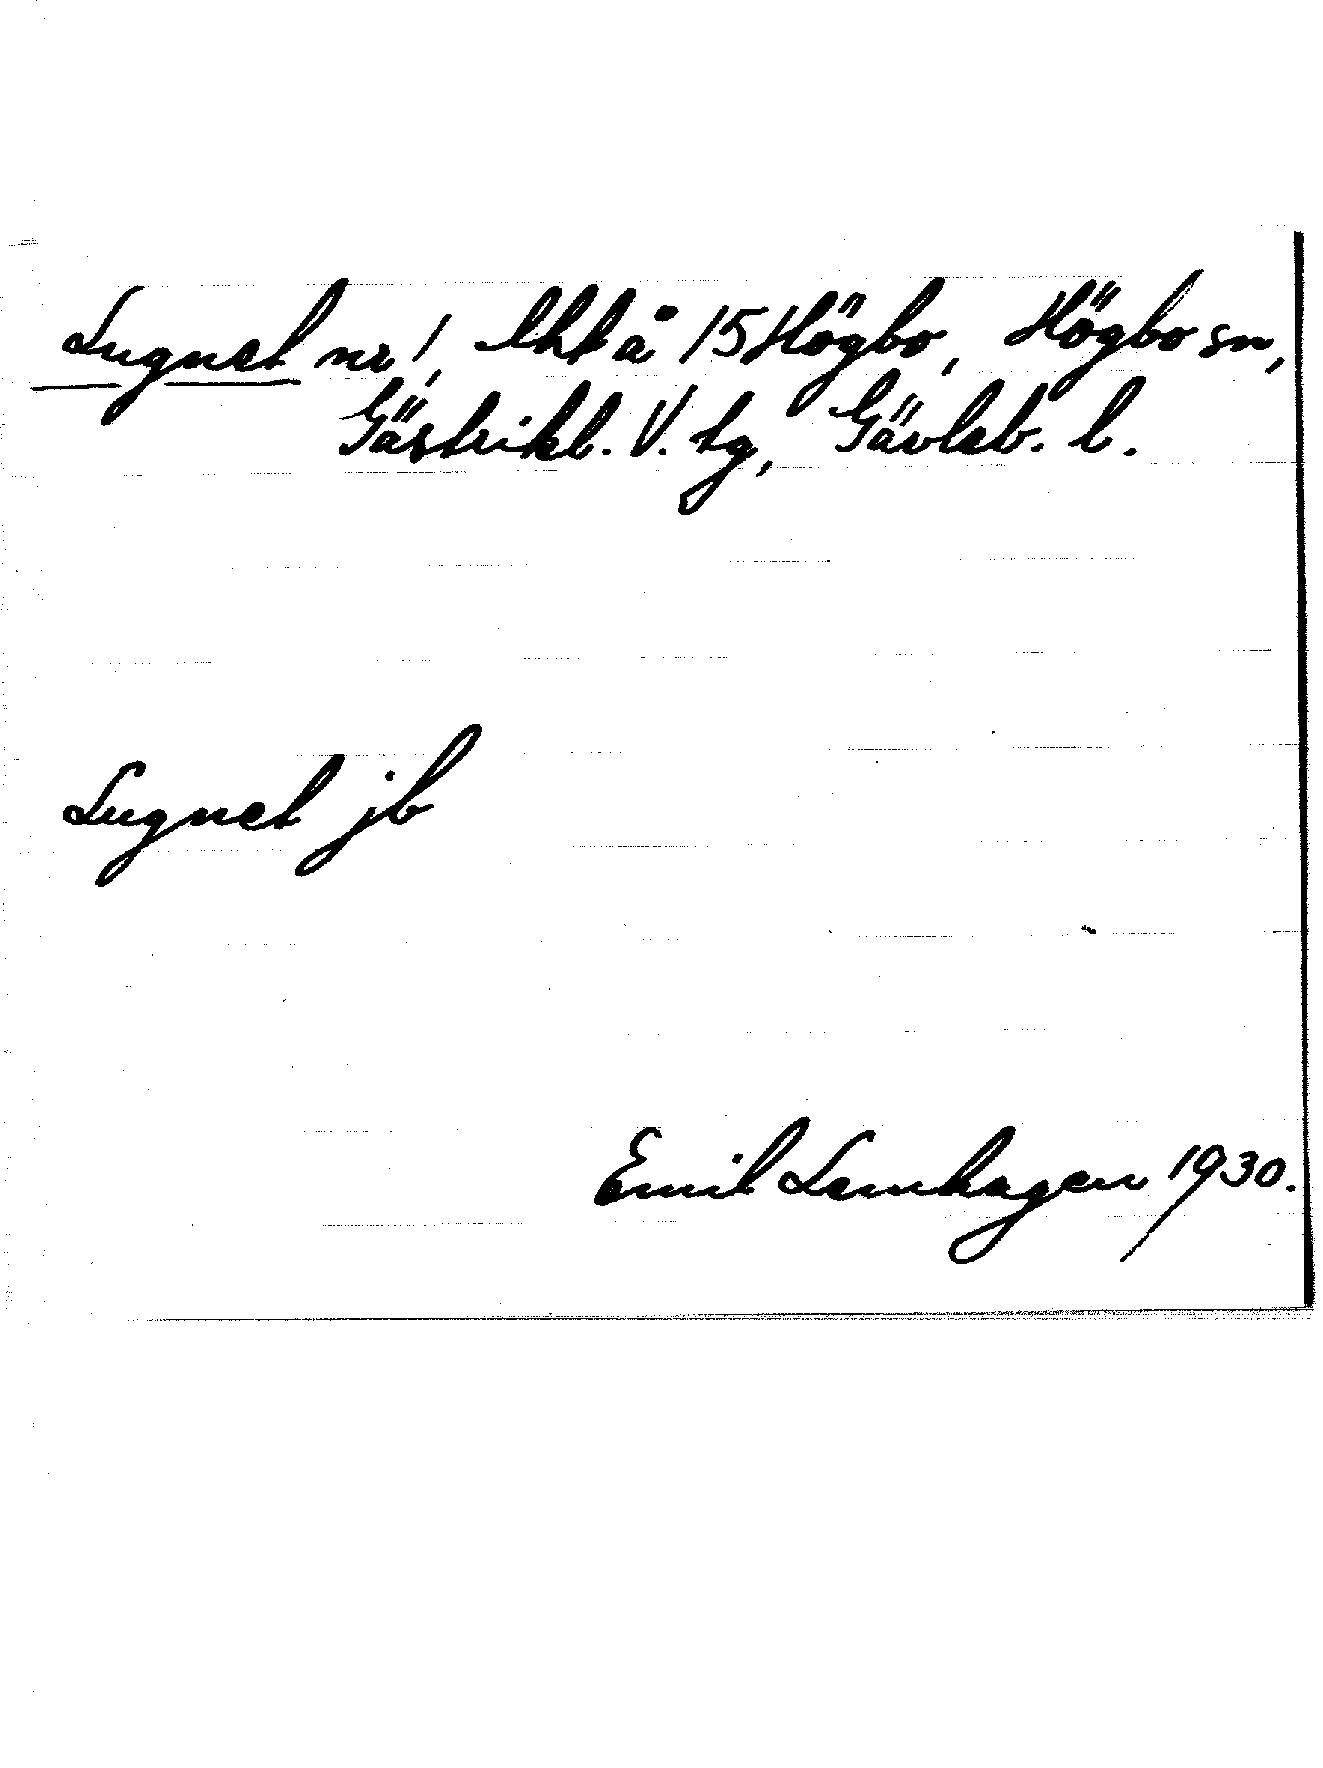 Lugnet nr 1, lht å 15 Högbo, Högbo sn,
Gästrikl. V. tg, Gävleb. l.
Lugnet jb
Emil Lemhagen 1930.